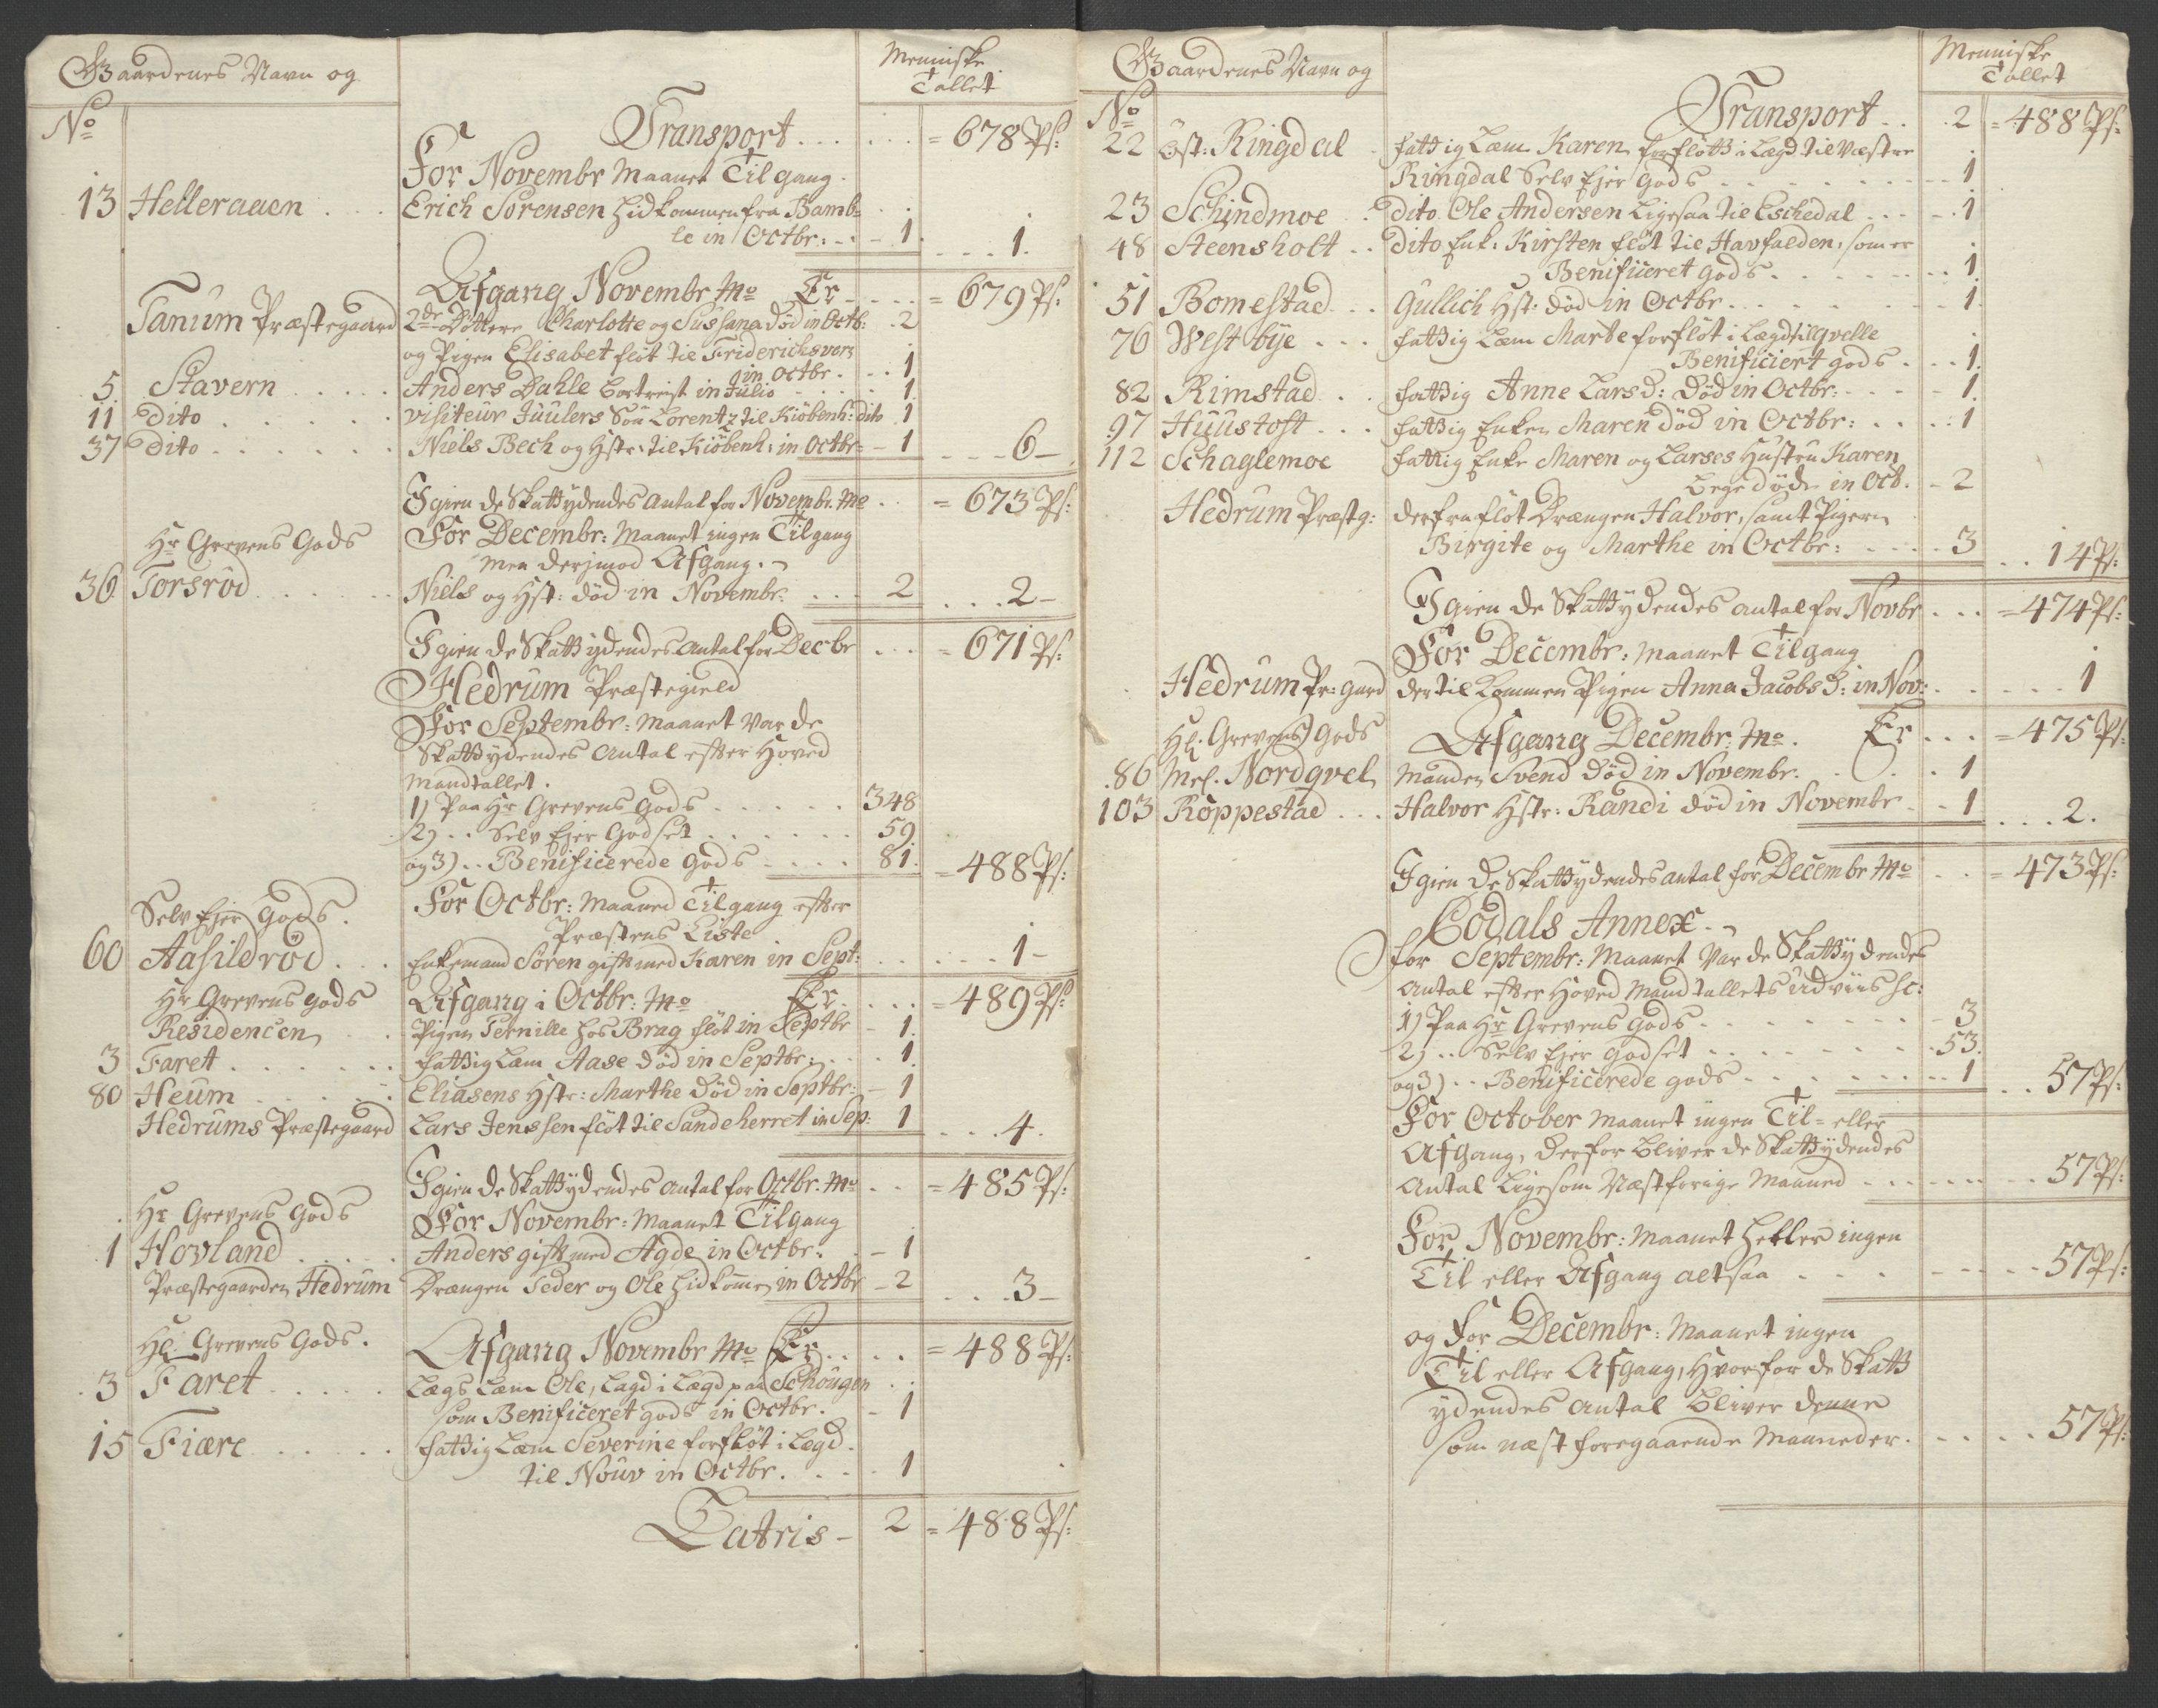 Gaardenes Navn og
Menniske
Tallet
No
Transport . . . = 678 Ps:
For Novembr Maanet Tilgang.
13 Helleraaen . . . Erich Sørensen hidkommen fra Bamb-
le in Octbr: - - 1. . . . 1.
Afgang Novembr Mo Er . . . = 679 Ps:
Tanum Præstegaard 2de Døttere Charlotte og Sussana død in Octb: . 2
og Pigen Elisabet fløt til Friderichsvern
in Octbr . . . 1
5. Stavern . . . Anders Dahle bortreist in Julio . . . 1.
11 Dito . . . Visiteur Juulers Søn Lorentz til Kiøbenh: dito 1
37 Dito . . . Niels Bech og Hstr: til Kiøbenh: in Octbr - 1 . . . 6 -
Igien de Skattÿdendes Antal for Novembr. Mo . . = 673 Ps:
Hr Grevens Gods
For Decembr: Maanet ingen Tilgang
men derjmod Afgang. -
36 Torsrød . . . Niels og Hst: død in Novembr. . . . 2 . . . 2 -
Igien de Skattÿdendes Antal for Decbr . . . = 671 Ps:
Hedrum Præstegield
For Septembr: Maanet Var de
Skattÿdendes Antal efter Hoved
Mandtallet.
1) Paa Hr Grevens Gods . . . 348
2) . . Selv Ejer Godset . . . 59
og 3) . . Benificerede Gods . . . 81. = 488 Ps:
Selv Ejer Gods.
For Octbr: Maaned Tilgang efter
Præstens Liste
60 Aasildrød . . . Enkemand Søren gift med Karen in Sept: . . . 1 -
Hr Grevens gods Afgang i Octbr: Mo Er . . . = 489 Ps:
Residencen . . Pigen Pernille hos Brag fløt in Septbr - 1.
3 Faret . . . fattig Lem Aase død in Septbr: . . . 1.
80 Heum . . . Eliasens Hstr: Marthe død in Septbr: - 1
Hedrums Præstegaard Lars Jenssen fløt til Sandeherret in Sep: 1 . . . 4.
Igien de Skattÿdendes Antal for Octbr. Mo . . = 485 Ps:
Hr Grevens Gods
For Novembr: Maanet Tilgang
1 Hovland . . . Anders gift med Agde in Octbr: . - 1
Præstegaarden Hedrum Drængen Peder og Ole hidkomen in Octbr - 2 . . . 3 -
Hr. Grevens Gods. Afgang Novembr Mo Er . . . = 488 Ps:
3 Faret . . . Lægs Lem Ole, Lagd i Lægd paa Schougen
som Benificeret gods in Octbr. - 1
15 Fiære . . . fattig Lem Severine forfløt i Legd
til Nouv in Octbr. . . . 1
Latris - 2 = 488 Ps:
Gaardenes Navn og
Menniske
Tallet
No
Transport . . . 2 = 488 Ps:
22 Øst: Ringdal . fattig Lem Karen forfløtt i Lægd til Væstre
Ringdal Selv Ejer Gods . . . 1
23 Schindmoe . . dito Ole Andersen Ligesaa til Eschedal . . . 1
48 Steensholt . . dito Enk: Kirsten fløt til Havfalden, som er
Benificeret gods . . . 1
51 Bomestad . . . Gullich Hst: død in Octbr . . . 1
76 Westbÿe . . . fattig Lem Marte forfløt i Lægd til Qvelle
Benificiert gods . . . 1.
82 Rimstad . . fattig Anne Larsd: Død in Octbr: . . . 1.
97 Huustoft . . . fattig Enken Maren død in Octbr: . . . 1
112 Schaglemoe fattig Enke Maren og Larses Hustru Karen
bege døde in Oct. - 2
Hedrum Præstg: derfra fløt Drængen Halvor, samt Pigerne
Birgite og Marthe in Octbr: . . . 3 . . 14 Ps:
Igien de Skattÿdendes antal for Novbr . . . = 474 Ps:
For Decembr: Maanet Tilgang
Hedrum Pr: gard der til kommen Pigen Anna Jacobs D: in Nov: . . . 1
Hr. Grevens Gods Afgang Decembr: Mo. Er . . . = 475 Ps:
86 Mel. Nordqvel Manden Svend Død in Novembr. . . . 1
103 Roppestad . . . Halvor Hstr: Randi død in Novembr - - 1 . . . 2.
Igien de Skattÿdendes antal for Decembr Mo . . = 473 Ps:
Lodals Annex. -
for Septembr: Maanet Var de Skattÿdendes
Antal efter Hoved Mandtallets udviis sc:
1) Paa Hr Grevens Gods . . . 3
2) . . Selv Ejer godset . . . 53.
og 3) . . Benificerede gods . . . 1 . . 57 Ps:
For October Maanet ingen Til- eller
Afgang, derfor bliver de Skattÿdendes
Antal Ligesom Næstforige Maaned . . . 57 Ps:
For Novembr: Maanet heller ingen
Til eller Afgang altsaa . . . 57 Ps:
og for Decembr: Maanet ingen
Til eller Afgang, hvorfor de Skatt
ÿdendes Antal bliver denne
som næst foregaaende Maaneder . . . 57 Ps: